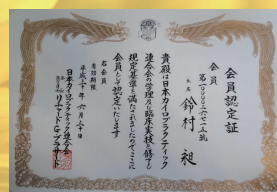 会員認定証
会員
第一〇〇〇二六七五号
氏名 鈴村 昶
貴殿は日本カイロプラクティック
連合会の学理及び臨床実技を修了し
規定基準を満たされましたのでここに
会員として認定いたします
右会員
有効期限
平成三十年 六月三十日
日本カイロプラクティック連合会